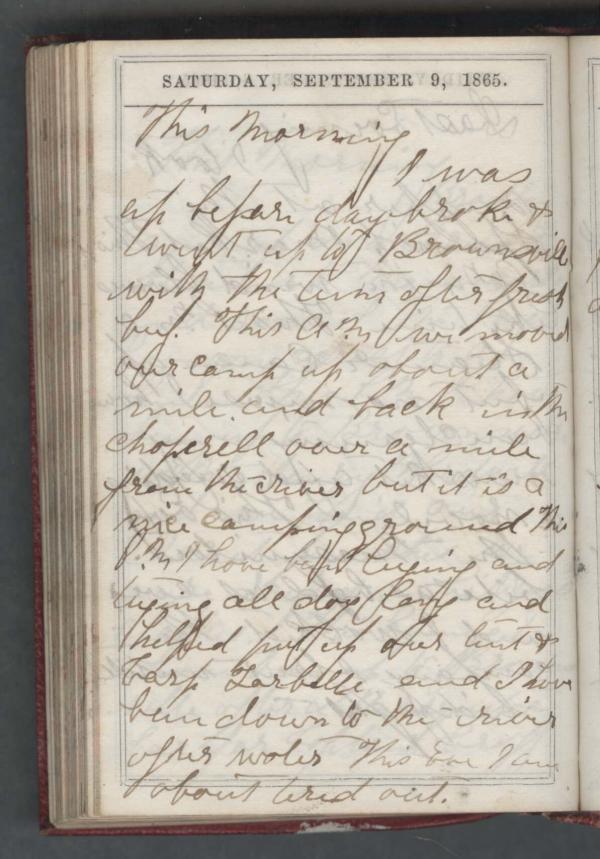 SATURDAY, SEPTEMBER 9, 1865.
This Morning
I was
up before day broke &
went up to Brownsvill
with the teim after fresh
buf. This A.M. we moved
our camp up about a
mile and back in the
choperell over a mile
from the river but it is a
nice camping ground This
P.M. I have been and
all day long and
helped put up our tent &
Corp Tarbelle and I have
ben down to the river
after water This Eve I am
about tired out.